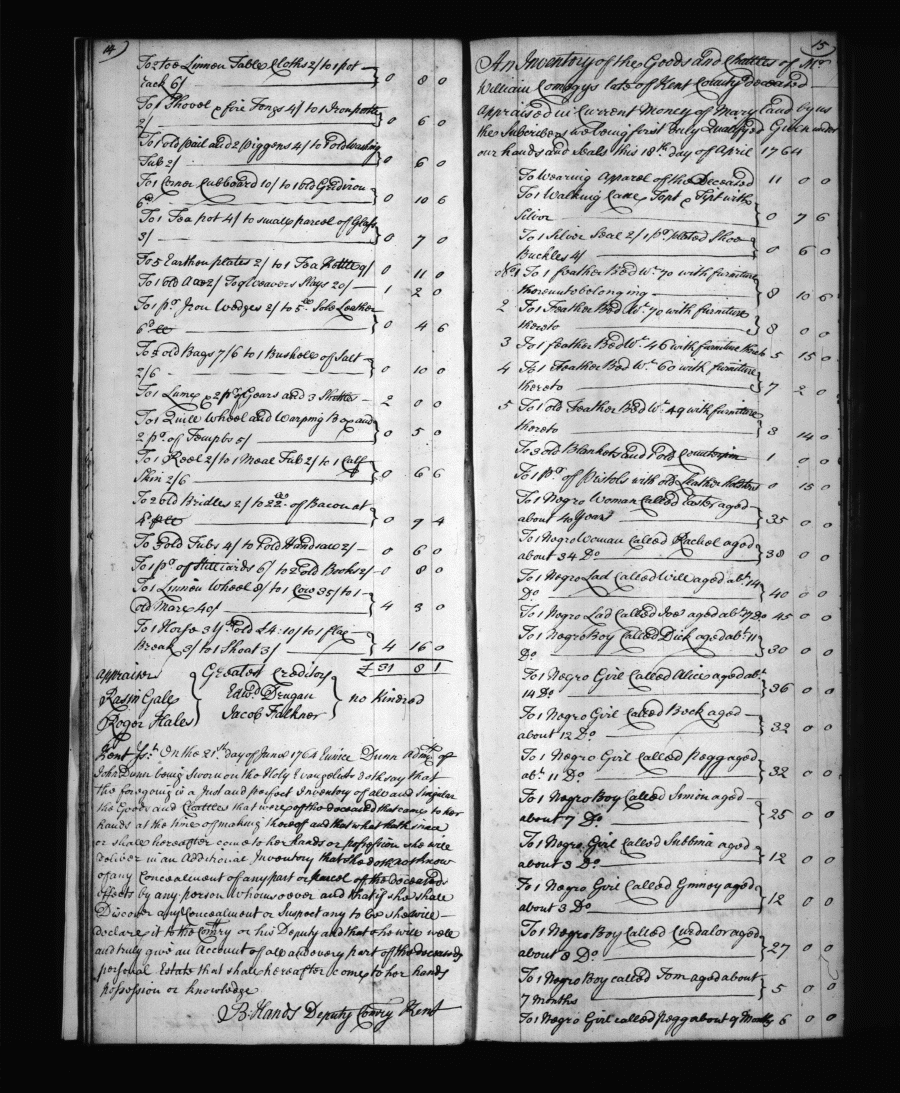 14)
To 2 toe Linnen Table Cloths 2/ to 1 pot
rack 6/ } 0 8 0
To 1 Shovel & fire Tongs 4/ to 1 Iron pottle
2/ } 0 6 0
To 1 old pail and 2 piggens 4/ to 1 old Washing
Tub 2/ } 0 6 0
To 1 Corner Cubboard 10/ to 1 old Gridiron
6d } 0 10 6
To 1 Tea pot 4/ to small parcel of Glass
3/ } 0 7 0
To 5 Earthen plates 2/ to 1 Tea Kettle 9/ 0 11 0
To 1 old 2/ To 9 Weavers Slays 20/ 1 2 0
To 1 pr. Iron Wedges 2/ to 5 Sole Leather
6d } 0 4 6
To 5 old Bags 7/6 to 1 Bushell of Salt
2/6 } 0 10 0
To 1 Lume & 2 pr. Gears and 3 Shttles 2 0 0
To 1 Quill Wheel and Warping Box and
2 pr. of Temples 5/ } 0 5 0
To 1 Reel 2/ to 1 Meal Tub 2/ to 1 Calf
Skin 2/6 } 0 6 6
To 2 old Bridles 2/ to 22 of Bacon at
4d } 0 9 4
To 3 old Tubs 4/ to 1 old Handsaw 2/ 0 6 0
To 1 pr of Stillierds 6/ to 2 old Books 2/ 0 8 0
To 1 Linnen Wheel 8/ to 1 Cow 35/ to 1
old Mare 40/ } 4 3 0
To 1 Horse 3 Yr. old £4:10/ to 1 flax
Break 3/ to 1 Shoat 3/ } 4 16 0
£31 8 1
appraisers
Rasin Gale
Roger Hales
Greatest Creditors
Edwd. Drugan
Jacob Falkner
no Kindred
Kent Js.: On the 21st. day of June 1764 Eunice Dunn admx. of
John Dunn being Sworn on the Holy Evangelist doth say that
the foregoing is a Just and perfect Inventory of all and singular
the Goods and Chattles that were of the deceased that came to her
hands at the time of making thereof and that what hath since
or shall hereafter come to her hands or possession she will
deliver in an Additional Inventory that she doth not know
of any Concealment of any part or parcel of the deceaseds
effects by any person Whomsoever and that if she shall
Discover any Concealment or Suspect any to be she will
declare it to the Comry or his Deputy and that she will well
and truly give an Account of all and every part of the deceaseds
personal Estate that shall hereafter come to her hands
possession or knowledge
B: Hands Deputy Comry Kent
15)
An Inventory of the Goods and Chattles of Mr
William Comegys late of Kent County deceased
Appraised in Current Money of Maryland by us
the Subscribers we being first duly Qualifyed Given under
our hands and Seals this 18th. day of April 1764
To Wearing Apparel of the Deceased 11 0 0
To 1 Walking Cane Topt & Tipt with
Silver } 0 7 6
To 1 Silver Seal 2/ 1 pr plated Shoe
Buckles 4/ } 0 6 0
No 1 To 1 feather Bed Wt. 70 with furniture
thereunto belonging } 8 10 6
2 To 1 Feather Bed Wt. 70 with furniture
thereto } 8 0 0
3 To 1 feather Bed Wt. 46 with furniture thereto 5 15 0
4 To 1 Feather Bed Wt. 60 with furniture
thereto } 7 2 0
5 To 1 old Feather Bed Wt. 49 with furniture
thereto } 3 14 0
To 3 old Blankets and 1 old Counterpin 1 0 0
To 1 pr. of Pistols with old Leather Holsters 0 15 0
To 1 Negro Woman Called Easter aged
about 40 Years } 35 0 0
To 1 Negro Woman Called Rachel aged
about 34 Do } 38 0 0
To 1 Negro Lad Called Will aged abt. 14
Do } 40 0 0
To 1 Negro Lad Called Joe aged abt. 17 Do 45 0 0
To 1 Negro Boy Called Dick aged abt. 11
Do } 30 0 0
To 1 Negro Girl Called Alice aged abt.
14 Do } 36 0 0
To 1 Negro Girl Called Beck aged
about 12 Do } 32 0 0
To 1 Negro Girl Called Pegg aged
abt. 11 Do } 32 0 0
To 1 Negro Boy Called Simon aged
about 7 Do } 25 0 0
To 1 Negro Girl Called Subbina aged
about 3 Do } 12 0 0
To 1 Negro Girl Called Ginney aged
about 3 Do } 12 0 0
To 1 Negro Boy Called aged
about 8 Do } 27 0 0
To 1 Negro Boy called Tom aged about
7 Months } 5 0 0
To 1 Negro Girl called Pegg about 9 Months 6 0 0